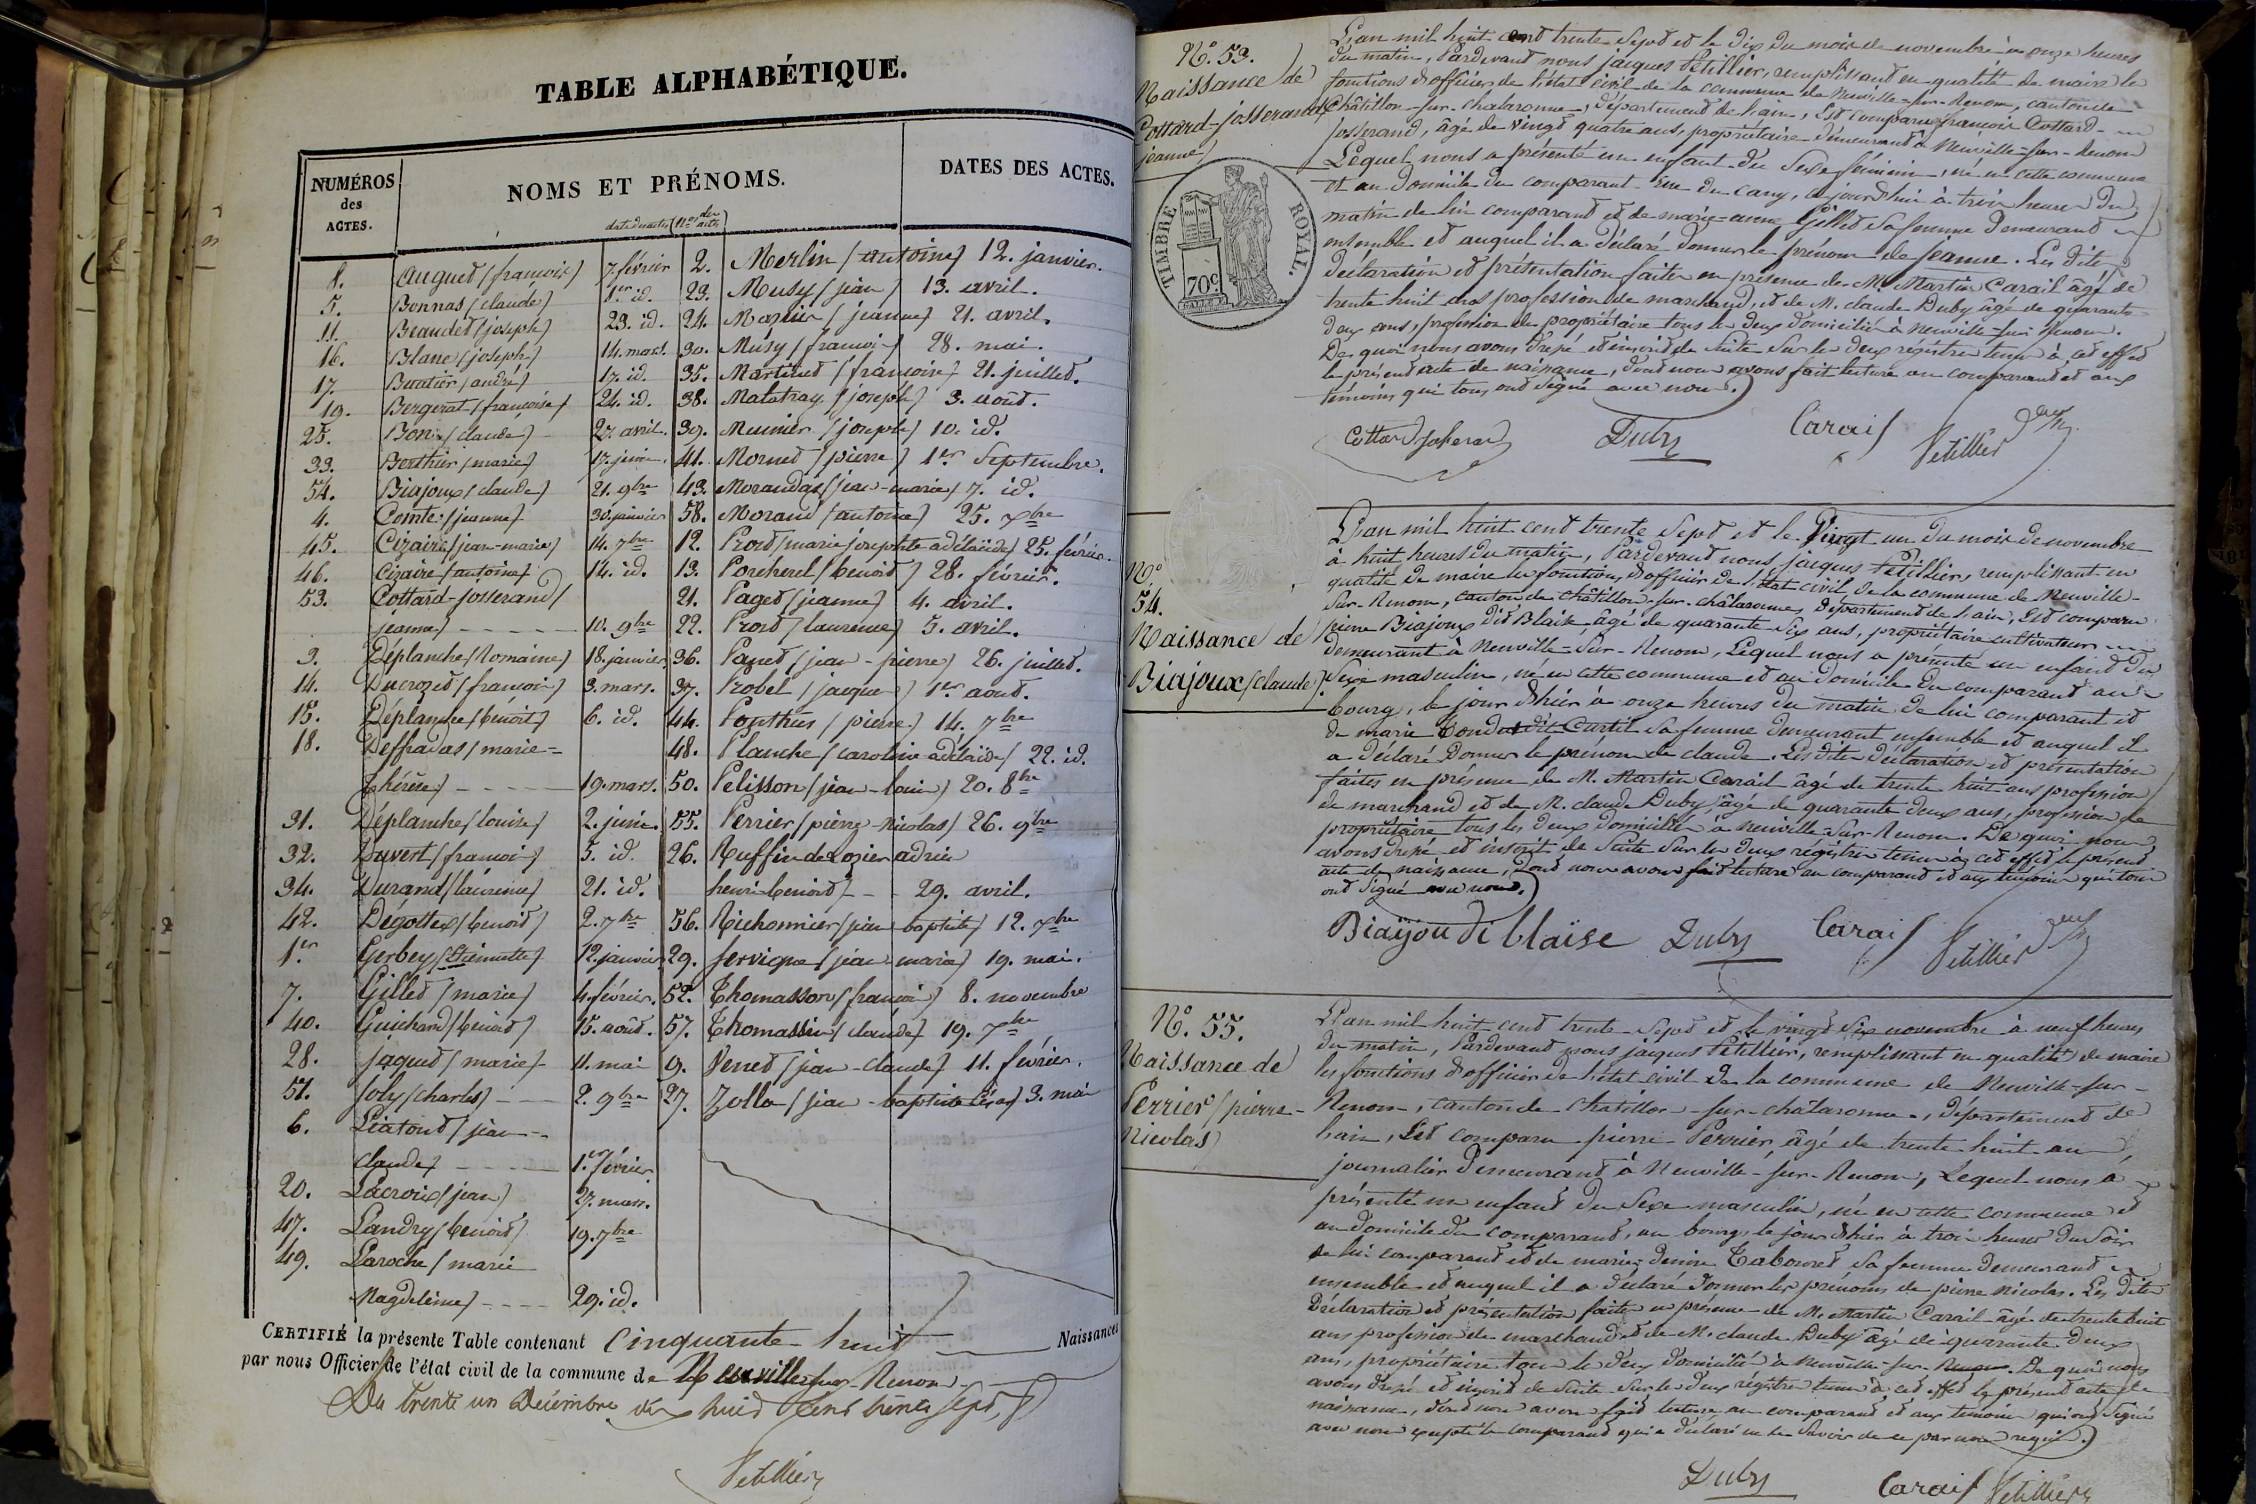 TABLE ALPHABÉTIQUE.
NUMÉROS des ACTES.
NOMS ET PRÉNOMS.
DATES DES ACTES.
8. Augued (françois) 7. février
5. Bonnas (claude) 1er id.
11. Beauded (joseph) 23. id.
16. Blanc (joseph) 14. mars.
17. Buatier (andré) 17. id.
19. Bergerat (françoise) 24. id.
25. Bon (claude) 27. avril.
33. Berthier (marie) 17. juin.
54. Biajoux (claude) 21. 9bre
4. Comte (jeanne) 30. janvier
45. Cizaire (jean-marie) 14. 7bre
46. Cizaire (antoine) 14. id.
53. Cottard-Josserand (
jeanne) 10. 9bre
3. Déplanche (Romaine) 18. janvier
14. Ducrozed (françois) 3. mars.
15. Déplanche (benoit) 6. id.
18. Deffradas (marie=
thérèse) 19. mars.
31. Déplanche (louise) 2. juin.
32. Duvert (françois) 5. id.
34. Durand (laurence) 21. id.
42. Dégottex (benoid) 2. 7bre
1er Gerbey (Etiennette) 12. janvier
7. Gilled (marie) 4. février.
40. Guichard (benoid) 15. août.
28. jaqued (marie) 11. mai
51. Joly (charles) 2. 9bre
6. Liatoud (jean-
claude) 1er février
20. Lacroix (jean) 27. mars.
47. Landry (benoid) 19. 7bre
49. Laroche (marie
Magdeleine) 29. id.
2. Merlin (antoine) 12. janvier.
23. Musy (jean) 13. avril.
24. Mazuir (jeanne) 21. avril.
30. Musy (françois) 28. mai.
35. Martined (françoise) 21. juilled.
38. Matatray (joseph) 3. août.
39. Meunier (joseph) 10. id.
41. Morned (pierre) 1er Septembre.
43. Morandas (jean-marie) 7. id.
58. Morand (antoine) 25. xbre
12. Prost (marie josephte adélaïde) 25. février.
13. Porcherel (benoid) 28. février.
21. Paged (jeanne) 4. avril.
22. Prost (laurence) 5. avril.
36. Paned (jean-pierre) 26. juilled.
37. Probel (jacques) 1er aout.
44. Ponthus (pierre) 14. 7bre
48. Planche (caroline adélaïde) 22. id.
50. Pelisson (jean-louis) 20. 8bre
55. Perrier (pierre-nicolas) 26. 9bre
26. Ruffin de Lozier adrien
henri benoid) 29. avril.
56. Richonnier (jean baptiste) 12. xbre
29. Servigne (jean marie) 19. mai.
52. Thomasson (françois) 8. novembre
57. Thomassin (claude) 19. xbre
9. Vened (jean-claude) 11. février.
27. Zolla (jean-baptiste César) 3. mai
CERTIFIÉ la présente Table contenant Cinquante-huit Naissances
par nous Officier de l'état civil de la commune de Neuville sur Renom
Du trente un Décembre dix huit cent trente sept
Petillier
N° 53.
Naissance de
Cottard-josserand
jeanne)
TIMBRE ROYAL.
70c
L'an mil huit cent trente Sept et le dix du mois de novembre à onze heures
du matin, Pardevant nous jacques Petillier, remplissant en qualité de maire les
fonctions d'officier de l'état civil de la commune de Neuville-sur-Renom, canton de
Châtillon-sur-chalaronne, département de l'ain, Est comparu françois Cottard-
josserand, âgé de vingt quatre ans, propriétaire demeurant à Neuville-sur-Renom
Lequel nous a présenté un enfant du Sexe féminin, né en cette commune
et au domicile du comparant du cany, aujourd'hui à trois heures du
matin de lui comparant et de marie-anne Gilled sa femme demeurant
ensemble et auquel il a déclaré donner le prénom de jeanne. Les dites
déclaration et présentation faites en présence de M. Martin Carail âgé de
trente huit ans profession de marchand, et de M. claude Duby âgé de quarante
deux ans, profession de propriétaire tous les deux domiciliés à Neuville-sur-Renom.
De quoi nous avons dressé et inscrit de suite sur les deux régistres tenus à cet effet
le présent acte de naissance, dont nous avons fait lecture au comparant et aux
témoins qui tous ont signé avec nous.
Cottard Joserand Duby Carail Petillier
N°
54.
Naissance de
Biajoux (claude).
L'an mil huit cent trente Sept et le Vingt un du mois de novembre
à huit heures du matin, Pardevant nous jacques Petillier, remplissant en
qualité de maire les fonctions d'officier de l'état civil de la commune de Neuville-
Sur-Renom, canton de châtillon-sur-châlaronne, département de l'ain, Est comparu
pierre Biajoux dit Blaise, âgé de quarante Six ans, propriétaire cultivateur
demeurant à Neuville-Sur-Renom, Lequel nous a présenté un enfant du
Sexe masculin, né en cette commune et au domicile du comparant au
bourg, le jour d'hier à onze heures du matin de lui comparant et
de marie dit Curtil sa femme demeurant ensemble et auquel il
a déclaré donner le prénom de claude. Les dites déclaration et présentation
faites en présence de M. Martin Carail âgé de trente huit ans profession
de marchand et de M. claude Duby, âgé de quarante deux ans, profession de
propriétaire tous les deux domiciliés à Neuville-Sur-Renom. De quoi nous
avons dressé et inscrit de suite sur les deux régistres tenus à cet effet le présent
acte de naissance, dont nous avons fait lecture au comparant et aux témoins qui tous
ont signé avec nous.
Biajou di blaise Duby Carail Petillier
N°. 55.
Naissance de
Perrier (pierre-
Nicolas)
L'an mil huit cent trente-Sept et le vingt Six novembre à neuf heures
du matin, Pardevant nous jacques Petillier, remplissant en qualité de maire
les fonctions d'officier de l'état civil de la commune de Neuville-sur-
Renom, canton de chatillon-sur-châlaronne, département de
l'ain, Est comparu pierre Perrier, âgé de trente huit ans,
journalier demeurant à Neuville-sur-Renom, Lequel nous a
présenté un enfant du Sexe masculin, né en cette commune et
au domicile du comparant, au bourg, le jour d'hier à trois heures du Soir
de lui comparant et de marie denise Tabouret sa femme demeurant
ensemble et auquel il a déclaré donner les prénoms de pierre nicolas. Les dites
Déclaration et présentation faites en présence de M. Martin Carail âgé de trente huit
ans profession de marchand et de M. claude Duby âgé de quarante deux
ans, propriétaire tous les deux domiciliés à Neuville-sur-Renom. De quoi nous
avons dressé et inscrit de suite sur les deux régistres tenus à cet effet le présent acte de
naissance, dont nous avons fait lecture au comparant et aux témoins qui ont signé
avec nous excepté le comparant qui a déclaré ne le Savoir de ce par nous requis.
Duby Carail Petillier